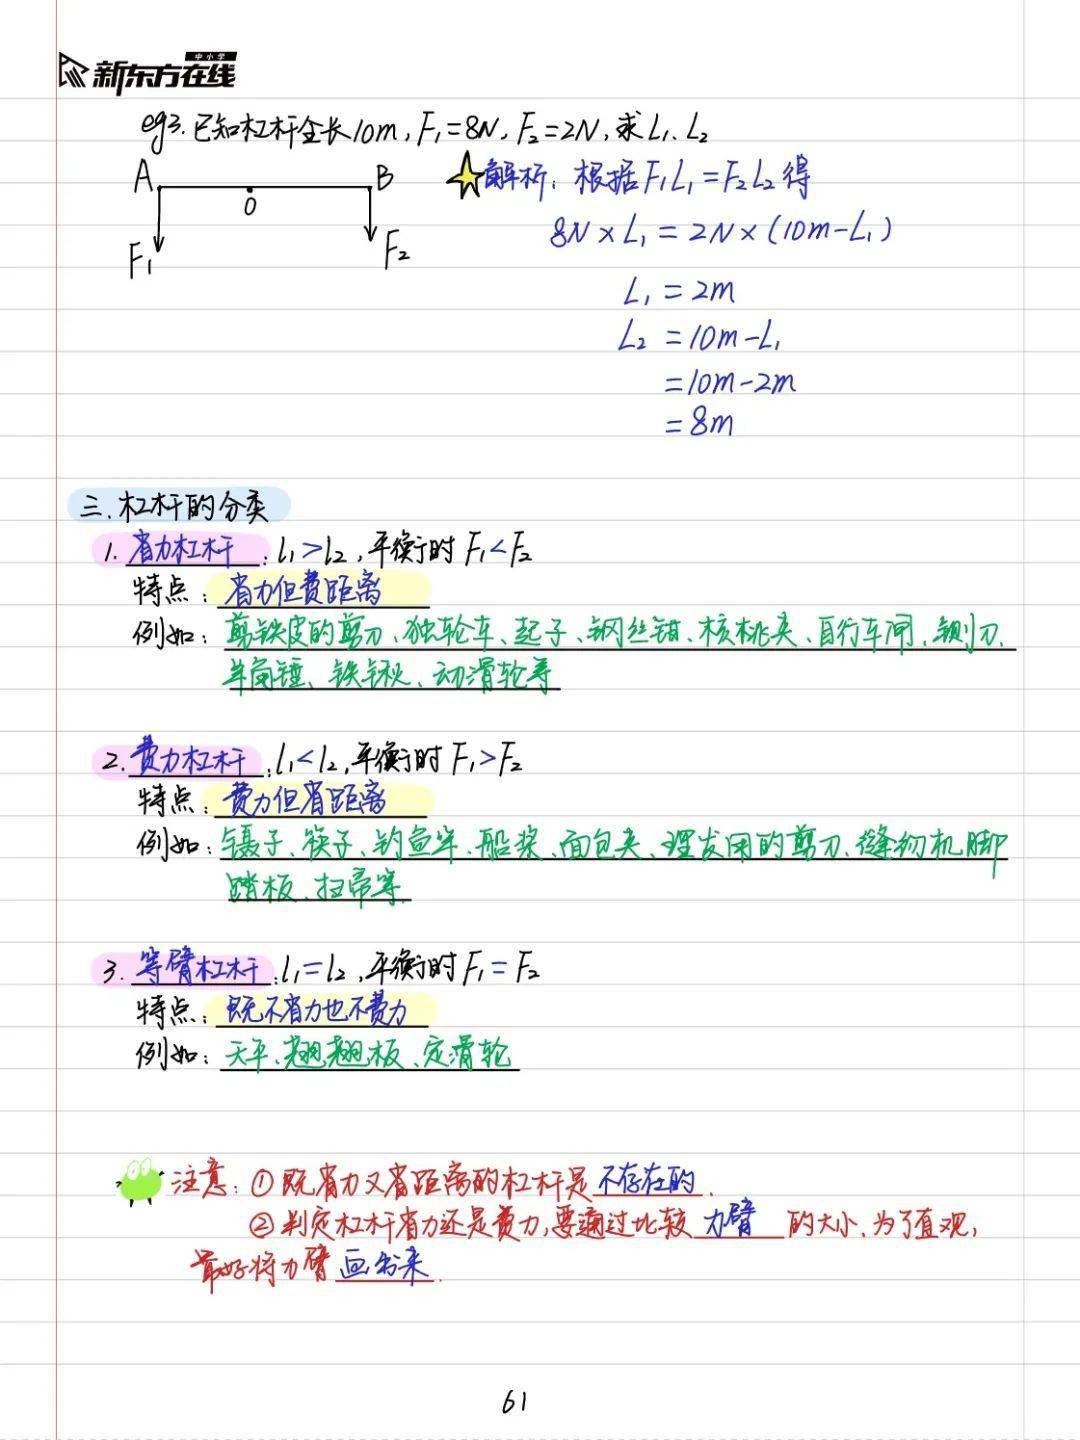 中小学
新东方在线
eg3. 已知杠杆全长10m, F₁=8N, F₂=2N, 求L₁、L₂
A B O F₁ F₂
解析: 根据F₁L₁=F₂L₂得
8N×L₁=2N×(10m-L₁)
L₁=2m
L₂=10m-L₁
=10m-2m
=8m
三.杠杆的分类
1. 省力杠杆: l₁>l₂, 平衡时F₁<F₂
特点: 省力但费距离
例如: 剪铁皮的剪刀、独轮车、起子、钢丝钳、核桃夹、自行车闸、铡刀、
羊角锤、铁锹、动滑轮等
2. 费力杠杆: l₁<l₂, 平衡时F₁>F₂
特点: 费力但省距离
例如: 镊子、筷子、钓鱼竿、船桨、面包夹、理发用的剪刀、缝纫机脚
踏板、扫帚等.
3. 等臂杠杆: l₁=l₂, 平衡时F₁=F₂
特点: 既不省力也不费力
例如: 天平、翘翘板、定滑轮
注意: ①既省力又省距离的杠杆是不存在的.
②判定杠杆省力还是费力,要通过比较 力臂 的大小.为了直观,
最好将力臂画出来.
61